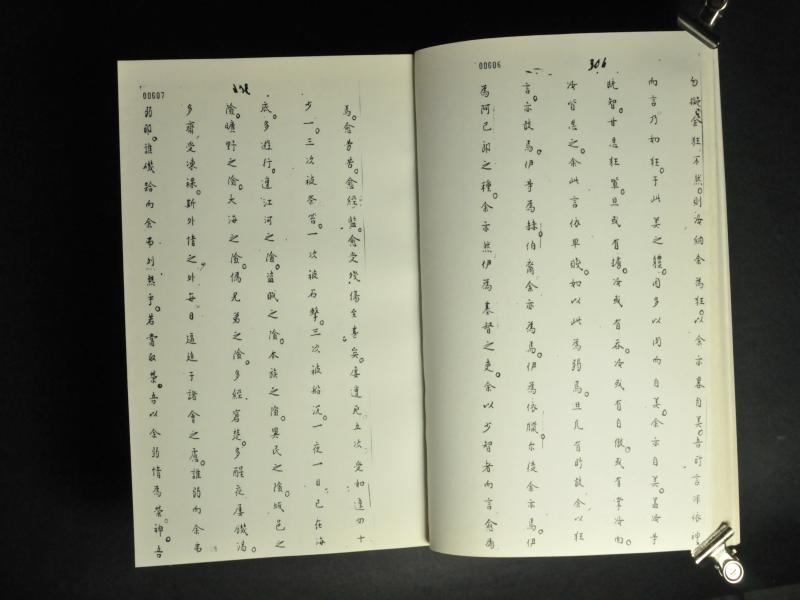 00606
306
勿擬余狂。不然。則汝納余為狂。以余亦自美。吾所言非依神
而言。乃如狂。于此美之體。因多以肉而自美。余亦自美。蓋汝等
既智。甘忍狂輩。且或有擄汝。或有吞汝。或有自傲。或有掌汝面
汝皆忍之。余此言依卑賤。如以此為弱焉。且凡有所敢。余以狂
言。亦敢焉。伊等為赫伯裔。余亦為焉。伊為依臘尔後。余亦焉。伊
為阿巴郎之種。余亦然。伊為基督之吏。余以少智者而言愈為
00607
焉。愈劳苦。愈經監。愈受殘傷至甚矣。屡遭死。五次受如達四十
少一。三次被笞。一次被石擊。三次被船沉。一夜一日已在海
底。多遊行。遭江河之險。盜賊之險。本族之險。異民之險。城邑之
險。曠野之險。大海之險。偽兄弟之險。多經窘楚。多醒夜。屡饑渴。
多齋受凍裸。斯外情之外。每日逼迫于諸會之慮。誰弱而余弗
弱耶。誰磯跲而余弗热乎。若當取榮。吾以余弱情為榮。神吾